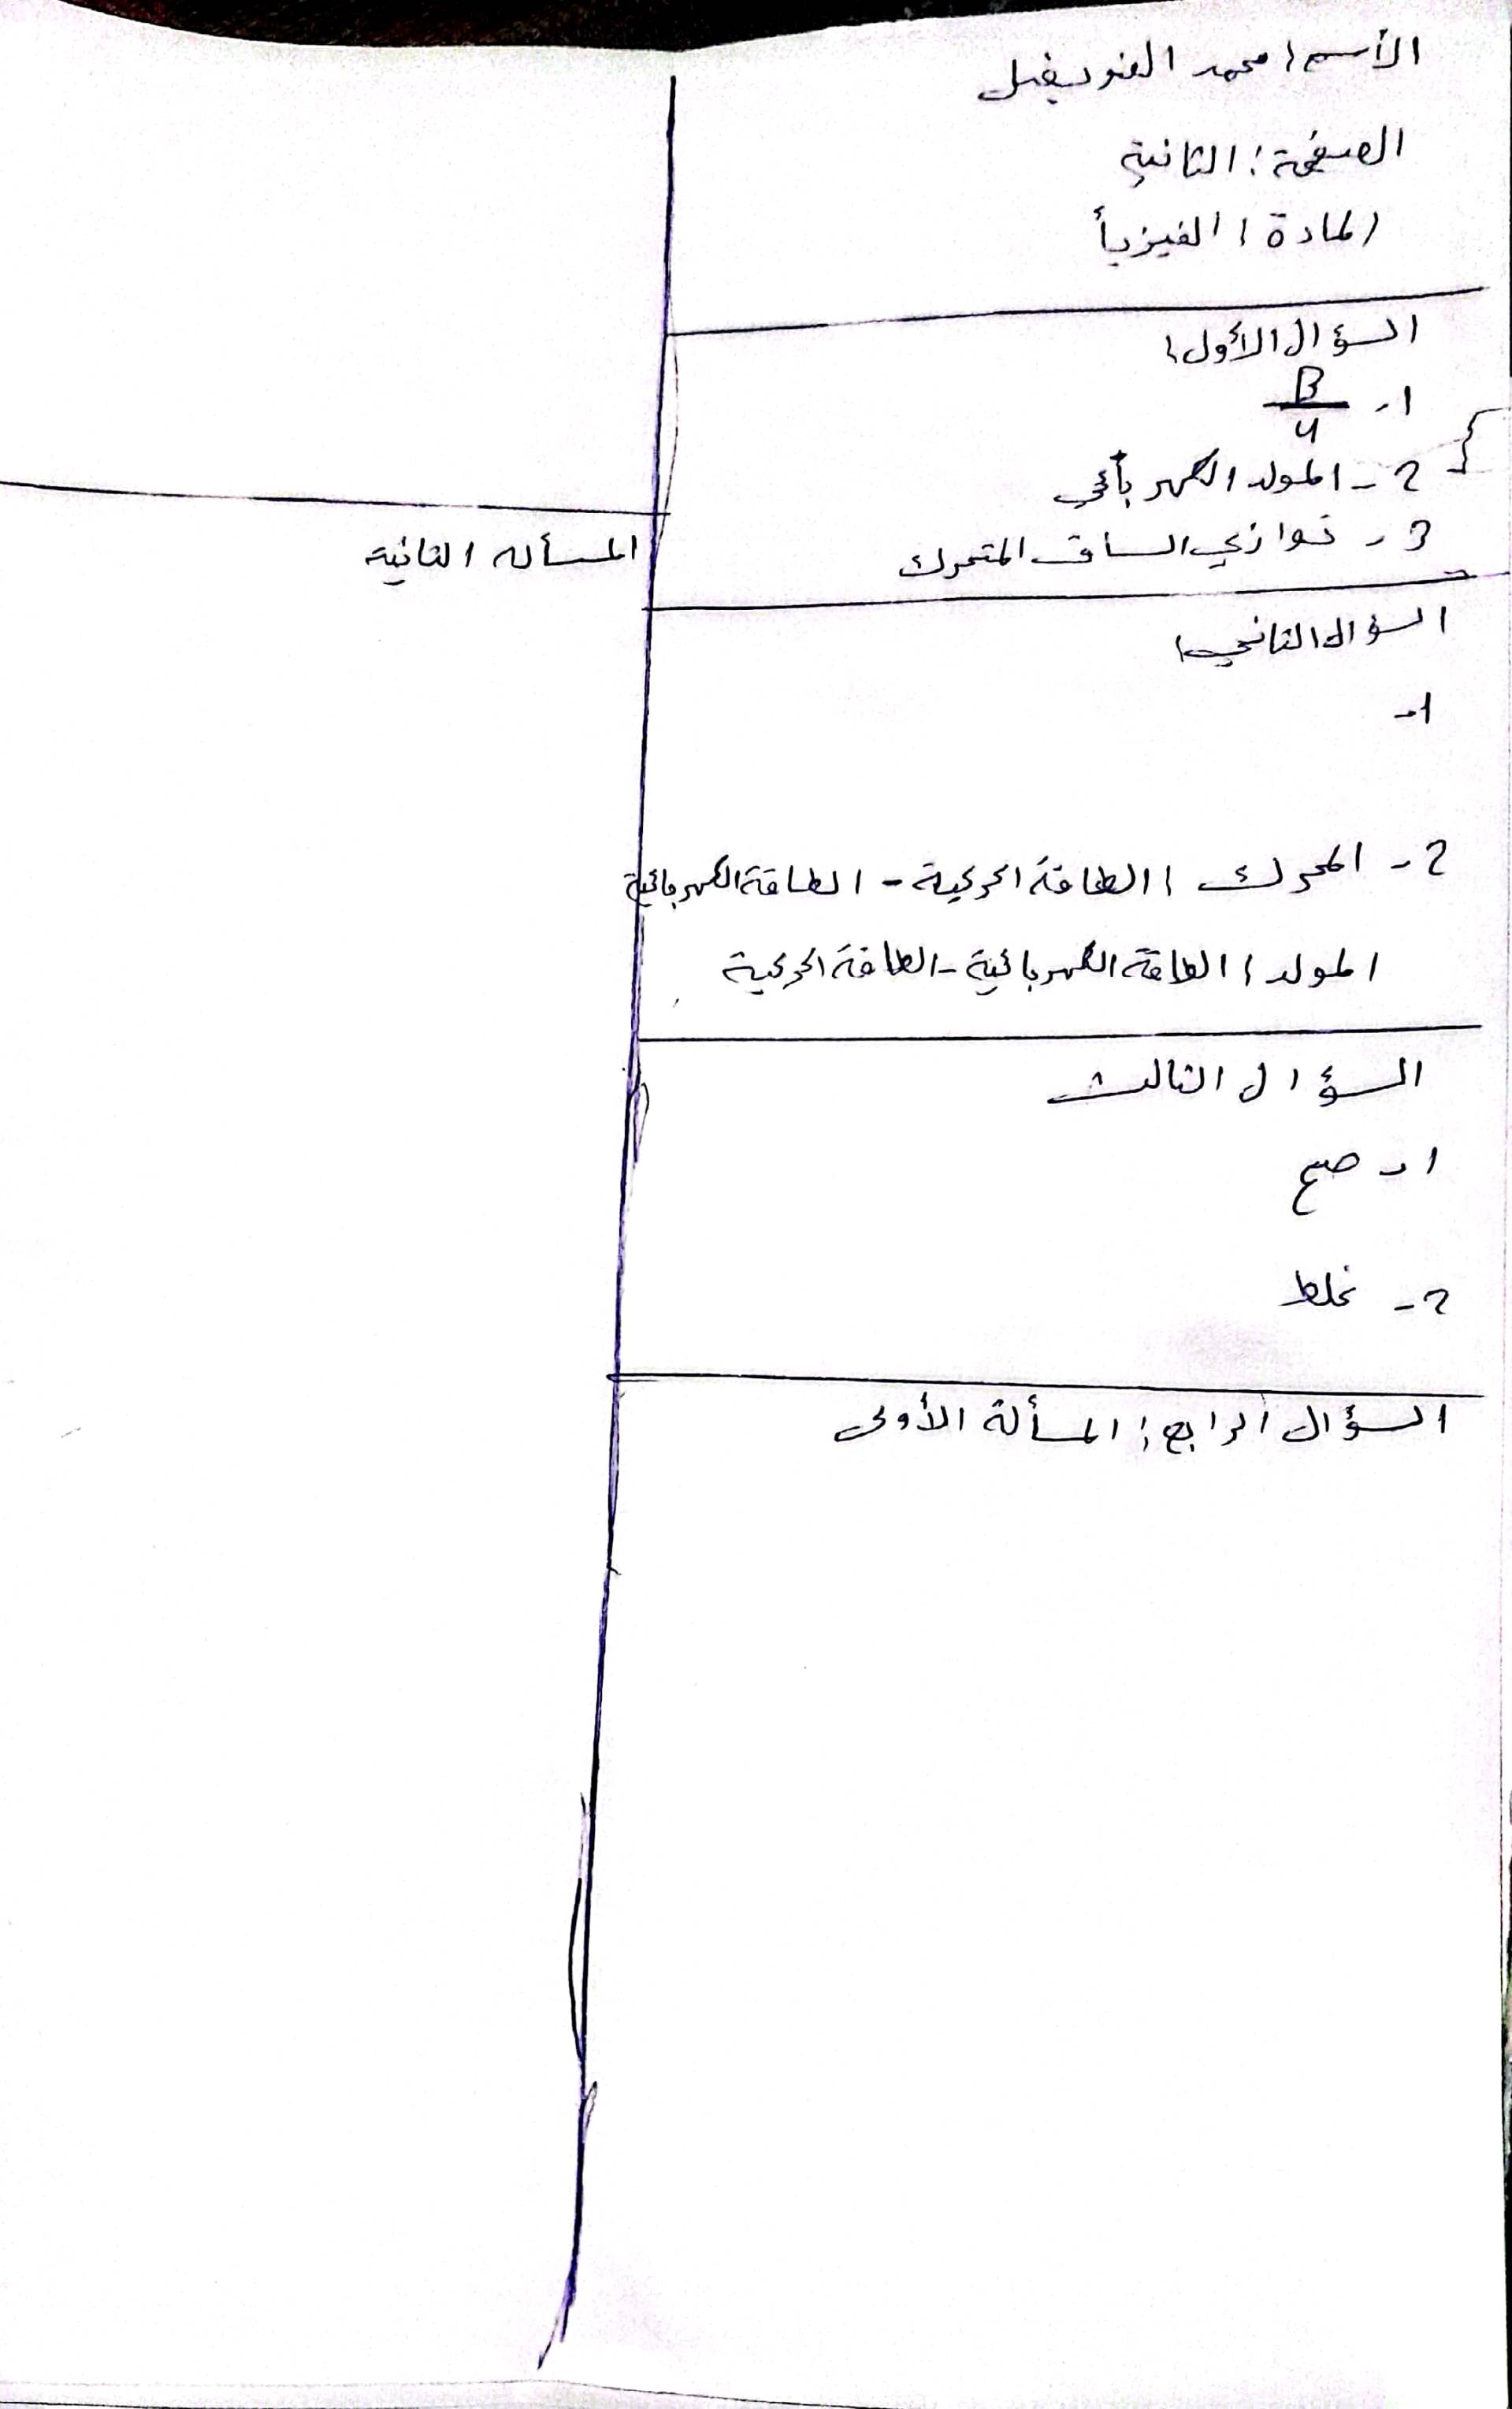 الأسم: محمد
الصفحة: الثانية
المادة: الفيزيأ
السؤال الأول:
1- B/4
2- المولد الكهربأئي
3- توازي الساق المتحرك
السؤال الثاني:
1-
2- المحرك: الطاقة الحركية - الطاقة الكهربائية
المولد: الطاقة الكهربائية - الطاقة الحركية
السؤال الثالث
1- صح
2- غلط
السؤال الرابع: المسألة الأولى
المسأله الثانية